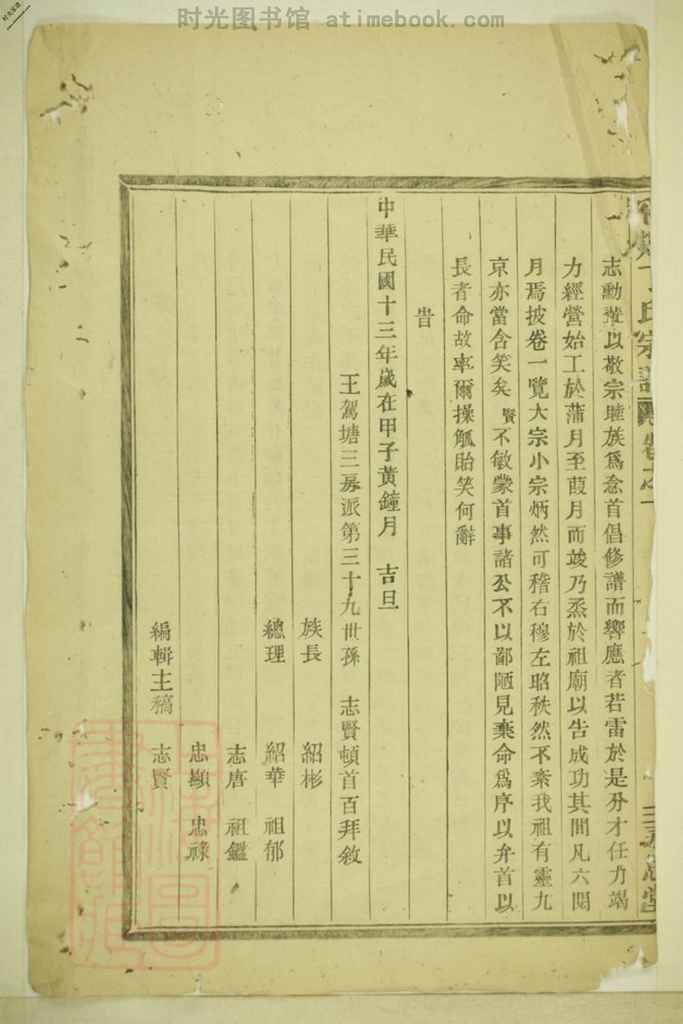 时光图书馆 atimebook.com
氏宗譜
志勳輩以敬宗睦族爲念首倡修譜而響應者若雷於是分才任力竭
力經營始工於蒲月至葭月而竣乃烝於祖廟以告成功其間凡六閱
月焉披卷一覽大宗小宗炳然可稽右穆左昭秩然不紊我祖有靈九
京亦當含笑矣賢不敏蒙首事諸公不以鄙陋見棄命爲序以弁首以
長者命故率爾操觚貽笑何辭
旹
中華民國十三年歲在甲子黃鐘月　吉旦
王駕塘三房派第三十九世孫　志賢頓首百拜敘
族長　紹彬
總理　紹華　祖郁
志唐　祖鑑
忠顯　忠祿
編輯主稿　志賢